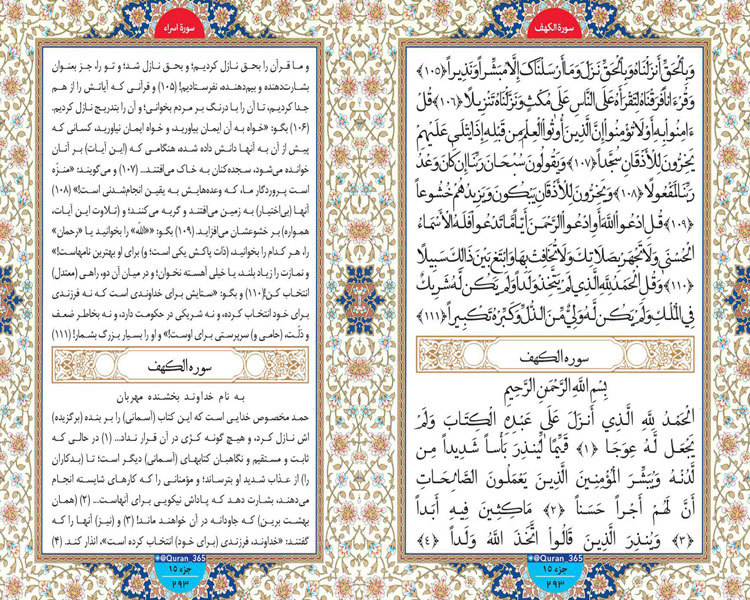 سورة الكهف
وَبِالْحَقِّ أَنزَلْنَاهُ وَبِالْحَقِّ نَزَلَ وَمَا أَرْسَلْنَاكَ إِلَّا مُبَشِّراً وَنَذِيراً ﴿١٠٥﴾
وَقُرْءَاناً فَرَقْنَاهُ لِتَقْرَأَهُ عَلَى النَّاسِ عَلَى مُكْثٍ وَنَزَّلْنَاهُ تَنْزِيلاً ﴿١٠٦﴾ قُلْ
ءَامِنُوا بِهِ أَوْ لَا تُؤْمِنُوا إِنَّ الَّذِينَ أُوتُوا الْعِلْمَ مِن قَبْلِهِ إِذَا يُتْلَى عَلَيْهِمْ
يَخِرُّونَ لِلْأَذْقَانِ سُجَّداً ﴿١٠٧﴾ وَيَقُولُونَ سُبْحَانَ رَبِّنَا إِن كَانَ وَعْدُ
رَبِّنَا لَمَفْعُولاً ﴿١٠٨﴾ وَيَخِرُّونَ لِلْأَذْقَانِ يَبْكُونَ وَيَزِيدُهُمْ خُشُوعاً
﴿١٠٩﴾ قُلِ ادْعُوا اللَّهَ أَوِ ادْعُوا الرَّحْمَنَ أَيّاً مَّا تَدْعُوا فَلَهُ الْأَسْمَاءُ
الْحُسْنَى وَلَا تَجْهَرْ بِصَلَاتِكَ وَلَا تُخَافِتْ بِهَا وَابْتَغِ بَيْنَ ذَالِكَ سَبِيلًا
﴿١١٠﴾ وَقُلِ الْحَمْدُ لِلَّهِ الَّذِي لَمْ يَتَّخِذْ وَلَداً وَلَمْ يَكُن لَّهُ شَرِيكٌ
فِي الْمُلْكِ وَلَمْ يَكُن لَّهُ وَلِيٌّ مِّنَ الذُّلِّ وَكَبِّرْهُ تَكْبِيراً ﴿١١١﴾
سوره الكهف
بِسْمِ اللَّهِ الرَّحْمَنِ الرَّحِيمِ
الْحَمْدُ لِلَّهِ الَّذِي أَنزَلَ عَلَى عَبْدِهِ الْكِتَابَ وَلَمْ
يَجْعَل لَّهُ عِوَجَا ﴿١﴾ قَيِّمًا لِّيُنذِرَ بَأْساً شَدِيداً مِن
لَّدُنْهُ وَيُبَشِّرَ الْمُؤْمِنِينَ الَّذِينَ يَعْمَلُونَ الصَّالِحَاتِ
أَنَّ لَهُمْ أَجْراً حَسَناً ﴿٢﴾ مَاكِثِينَ فِيهِ أَبَداً
﴿٣﴾ وَيُنذِرَ الَّذِينَ قَالُوا اتَّخَذَ اللَّهُ وَلَداً ﴿٤﴾
@Quran_365
جزء ۱۵
۲۹۳
سورة اسراء
و ما قرآن را بحق نازل کردیم؛ و بحق نازل شد؛ و تو را، جز بعنوان
بشارت‌دهنده و بیم‌دهنده نفرستادیم! (۱۰۵) و قرآنی که آیاتش را از هم
جدا کردیم، تا آن را با درنگ بر مردم بخوانی؛ و آن را بتدریج نازل کردیم.
(۱۰۶) بگو: «خواه به آن ایمان بیاورید، و خواه ایمان نیاورید، کسانی که
پیش از آن به آنها دانش داده شده، هنگامی که (این آیات) بر آنان
خوانده می‌شود، سجده‌کنان به خاک می‌افتند... (۱۰۷) و می‌گویند: «منزّه
است پروردگار ما، که وعده‌هایش به یقین انجام‌شدنی است!» (۱۰۸)
آنها (بی‌اختیار) به زمین می‌افتند و گریه می‌کنند؛ و (تلاوت این آیات،
همواره) بر خشوعشان می‌افزاید. (۱۰۹) بگو: «اللّه» را بخوانید یا «رحمان»
را، هر کدام را بخوانید، (ذات پاکش یکی است؛ و) برای او بهترین نامهاست!»
و نمازت را زیاد بلند، یا خیلی آهسته نخوان؛ و در میان آن دو، راهی (معتدل)
انتخاب کن! (۱۱۰) و بگو: «ستایش برای خداوندی است که نه فرزندی
برای خود انتخاب کرده، و نه شریکی در حکومت دارد، و نه بخاطر ضعف
و ذلّت، (حامی و) سرپرستی برای اوست!» و او را بسیار بزرگ بشمار! (۱۱۱)
سوره الكهف
به نام خداوند بخشنده مهربان
حمد مخصوص خدایی است که این کتاب (آسمانی) را بر بنده (برگزیده)
اش نازل کرد، و هیچ گونه کژی در آن قرار نداد... (۱) در حالی که
ثابت و مستقیم و نگاهبان کتابهای (آسمانی) دیگر است؛ تا (بدکاران
را) از عذاب شدید او بترساند؛ و مؤمنانی را که کارهای شایسته انجام
می‌دهند، بشارت دهد که پاداش نیکویی برای آنهاست... (۲) (همان
بهشت برین) که جاودانه در آن خواهند ماند! (۳) و (نیز) آنها را که
گفتند: «خداوند، فرزندی (برای خود) انتخاب کرده است»، انذار کند. (۴)
@Quran_365
جزء ۱۵
۲۹۳